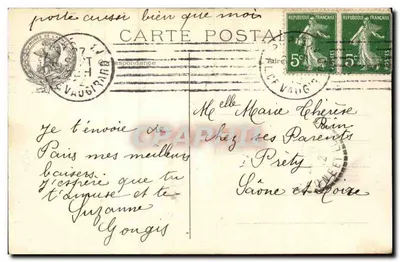 porte aussi bien que moi
CARTE POSTALE
RÉPUBLIQUE FRANÇAISE
RÉPUBLIQUE FRANÇAISE
5c
5c
POSTES
POSTES
VAUGIRARD
VAUGIRARD
Correspondance
Melle Marie Thérèse
Pain
chez ses Parents
Préty
Saône et Loire
je t'envoie de
Paris mes meilleurs
baisers.
j'espère que tu
t'amuse et te
Suzanne
Gougis